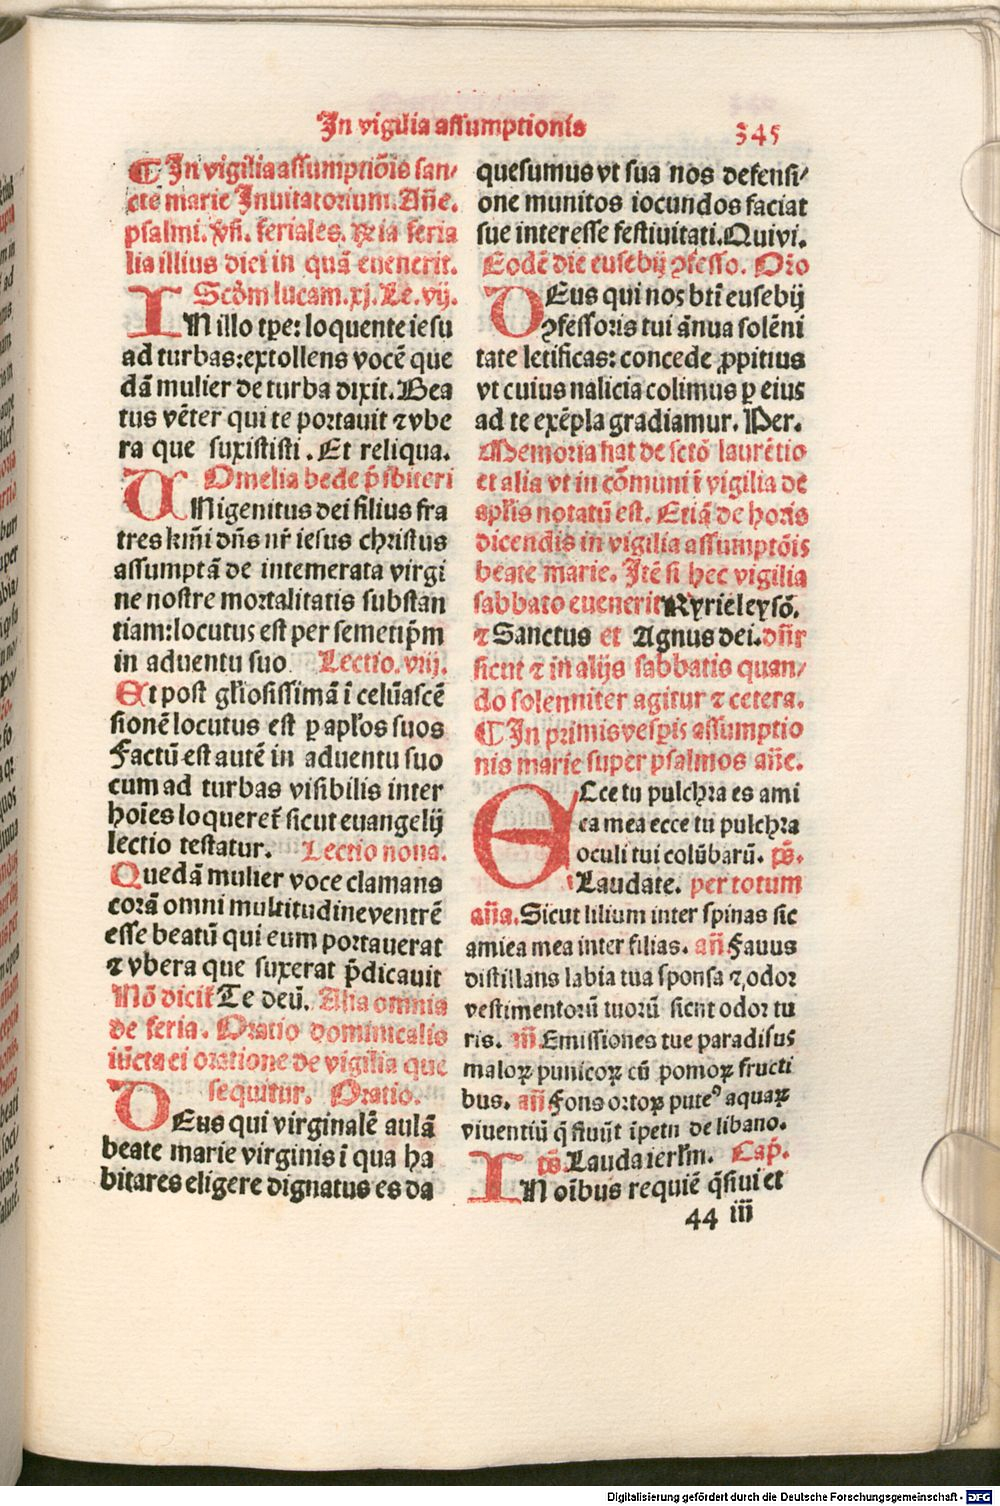 In vigilia assumptionis
345
¶ In vigilia assumptiōis san⸗
cte marie Inuitatorium. Añe.
psalmi. v̄si. feriales. Rx̄ia feria
lia illius diei in quā euenerit.
Scd̄m lucam. xj. Le. vij.
IN illo tp̄e: loquente iesu
ad turbas: extollens vocē que
dā mulier de turba dixit. Bea
tus vēter qui te portauit ⁊ vbe
ra que suxististi. Et reliqua.
Omelia bede p̄sbiteri
UNigenitus dei filius fra
tres kmī dn̄s nr̄ iesus christus
assumptā de intemerata virgi
ne nostre mortalitatis substan
tiam: locutus est per semetip̄m
in aduentu suo Lectio. viij.
Et post gl̄iosissimā ī celū ascē
sionē locutus est ꝑ apl̄os suos
Factū est autē in aduentu suo
cum ad turbas visibilis inter
hoīes loqueret̄ sicut euangelij
lectio testatur. Lectio nona.
Quedā mulier voce clamans
corā omni multitudine ventrē
esse beatū qui eum portauerat
⁊ vbera que suxerat p̄dicauit
Nō dicit̄ Te deū. Alia omnia
de feria. Oratio dominicalis
iūcta ei oratione de vigilia que
sequitur. Oratio.
DEus qui virginalē aulā
beate marie virginis ī qua ha
bitares eligere dignatus es da
quesumus vt sua nos defensi⸗
one munitos iocundos faciat
sue interesse festiuitati. Qui vi.
Eodē die eusebij ꝯfesso. Oro
DEus qui nos btī eusebij
ꝯfessoris tui ānua solēni
tate letificas: concede ꝓpitius
vt cuius nalicia colimus ꝑ eius
ad te exēpla gradiamur. Per.
Memoria fiat de sctō laurētio
et alia vt in cōmuni ī vigilia de
apl̄is notatū est. Etiā de horis
dicendis in vigilia assumptōis
beate marie. Itē si hec vigilia
sabbato euenerit Kyrieleysō.
⁊ Sanctus et Agnus dei. dn̄r
sicut ⁊ in alijs sabbatis quan⸗
do solenniter agitur ⁊ cetera.
¶ In primis vesp̄is assumptio
nis marie super psalmos añe.
ECce tu pulchra es ami
ca mea ecce tu pulchra
oculi tui colūbarū. ps̄.
Laudate. per totum
aña. Sicut lilium inter spinas sic
amica mea inter filias. añ Fauus
distillans labia tua sponsa ⁊ odor
vestimentorū tuorū sicut odor tu
ris. añ Emissiones tue paradisus
maloꝝ punicoꝝ cū pomoꝝ fructi
bus. añ Fons ortoꝝ puteꝰ aquaꝝ
viuentiū q̄ fluūt īpetu de libano.
ps̄. Lauda ierl̄m. Cap̄.
IN oībus requiē q̄siui et
44 iii
Digitalisierung gefördert durch die Deutsche Forschungsgemeinschaft - DFG